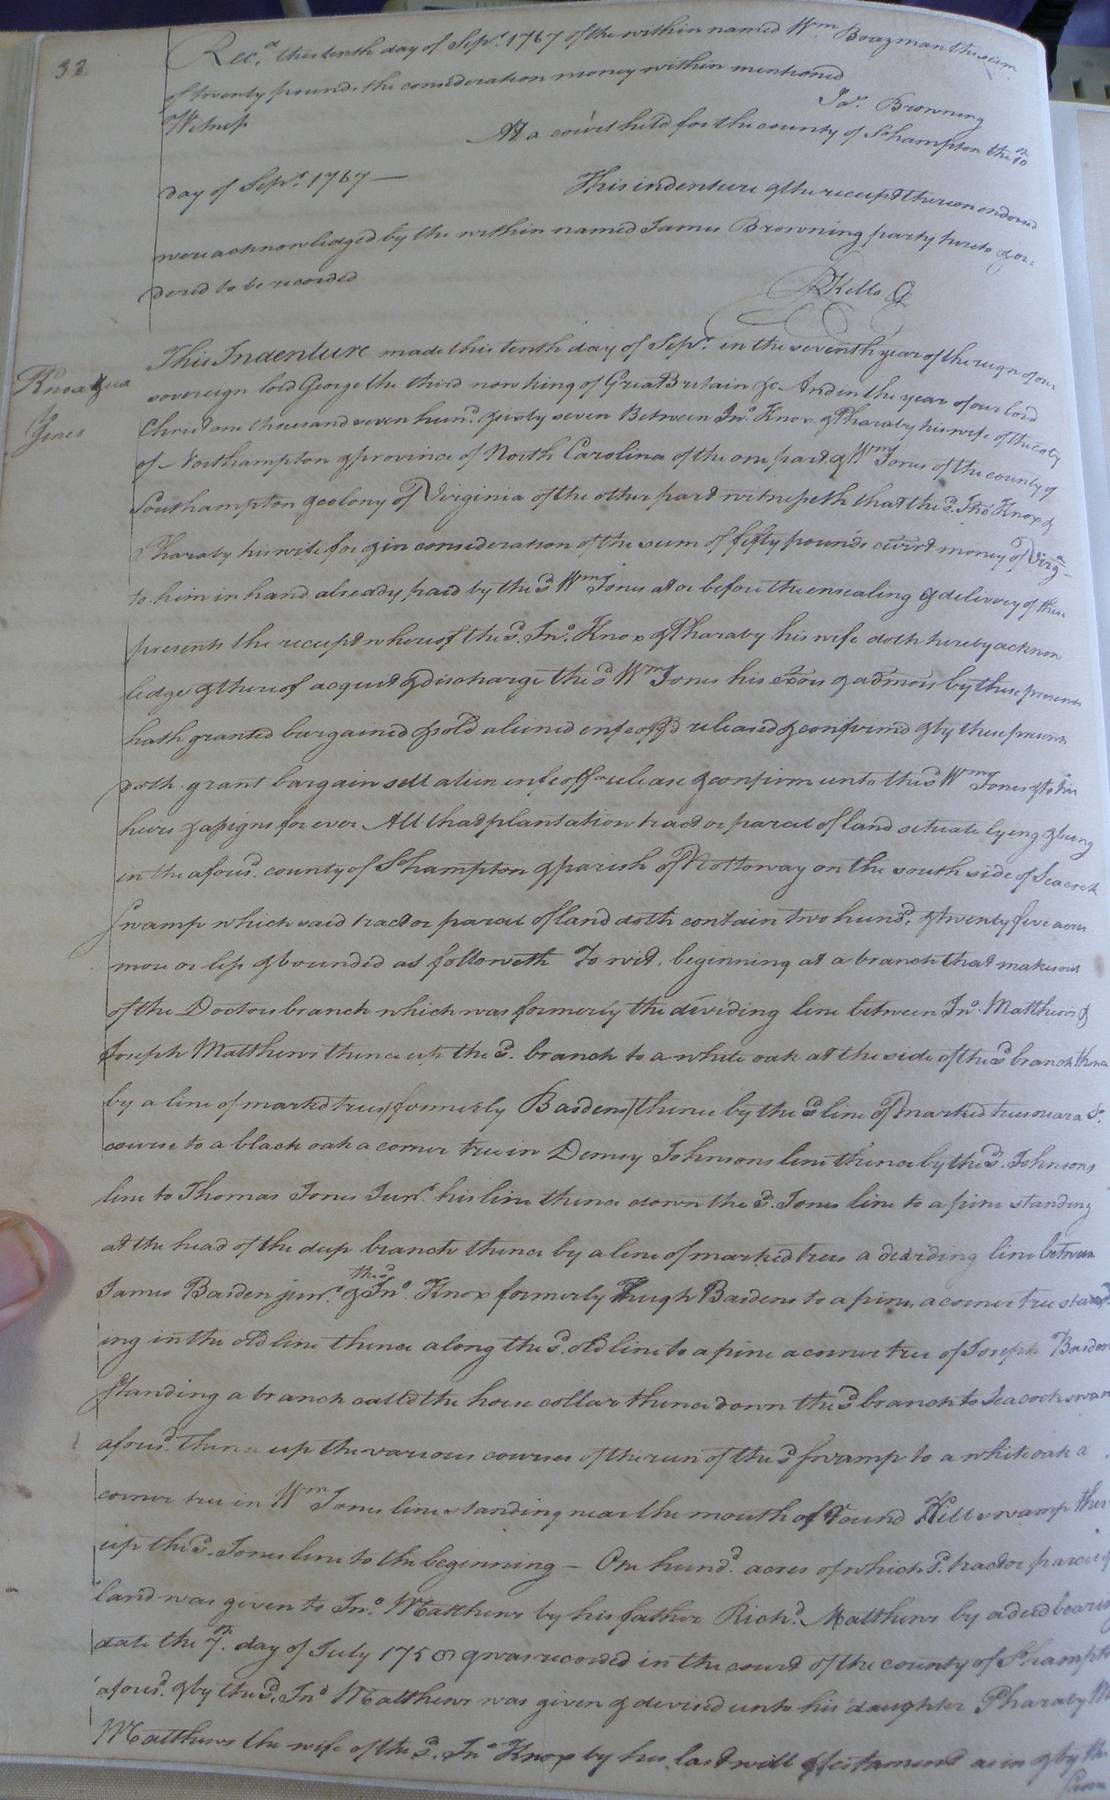 32
Rec.d this tenth day of Sep.r 1767 of the within named Wm Boazman the sum
of twenty pounds the consideration money within mentioned
Jas. Browning
Witness
At a court held for the county of Sohampton the 10th
day of Sepr. 1767 —
This indenture & the receipt thereon endorsed
were acknowledged by the within named James Browning party hereto & or=
dered to be recorded
RKello
Knox & ux
Jones
This Indenture made this tenth day of Sepr. in the seventh year of the reign of our
sovereign lord George the third now king of Great Britain &c And in the year of our lord
Christ one thousand seven hund. & sixty seven Between Jno. Knox & Pharaby his wife of the coty
of Northampton & province of North Carolina of the one part & Wm Jones of the county of
Southampton & colony of Virginia of the other part witnesseth that the sd. Jno Knox &
Pharaby his wife for & in consideration of the sum of fifty pounds currt money of Virga
to him in hand already paid by the sd Wm Jones at or before the ensealing & delivery of these
presents the receipt whereof the sd. Jno. Knox & Pharaby his wife doth hereby acknow
ledge & thereof acquit & discharge the sd Wm Jones his exors & admors by these presents
hath granted bargained & sold aliened enfeoff'd released & confirmed & by these presents
doth grant bargain sell alien enfeoff release & confirm unto the sd Wm Jones & to his
heirs & assigns for ever All that plantation tract or parcel of land situate lying & being
in the afores. county of Sohampton & parish of Nottoway on the south side of Seacock
swamp which said tract or parcel of land doth contain two hund. & twenty five acres
more or less & bounded as followeth To wit. beginning at a branch that makes out
of the Doctors branch which was formerly the dividing line between Jno. Matthews &
Joseph Matthews thence up the sd. branch to a white oak at the side of the sd branch thence
by a line of markd trees formerly Bardens thence by the sd line of marked trees near a So.
course to a black oak a corner tree in Demcy Johnsons line thence by the sd. Johnsons
line to Thomas Jones Junr. his line thence down the sd. Jones line to a pine standing
at the head of the deep branch thence by a line of marked trees a dividing line between
James Barden junr. & the sd Jno Knox formerly Hugh Bardens to a pine a corner tree stand
ing in the old line thence along the sd. old line to a pine a corner tree of Joseph Barden
standing a branch calld the horse collar thence down the sd branch to Seacock swam
afores. thence up the various courses of the run of the sd swamp to a white oak a
corner tree in Wm Jones line standing near the mouth of Round Hill swamp then
up the sd. Jones line to the beginning — One hund. acres of which sd. tract or parcel of
land was given to Jno. Matthews by his father Richd. Matthews by a deed bearing
date the 7th. day of July 175 & was recorded in the court of the county of Sohampto
afores. & by the sd. Jno Matthews was given & devised unto his daughter Pharaby M
Matthews the wife of the sd. Jno Knox by his last will & testament as in & by th